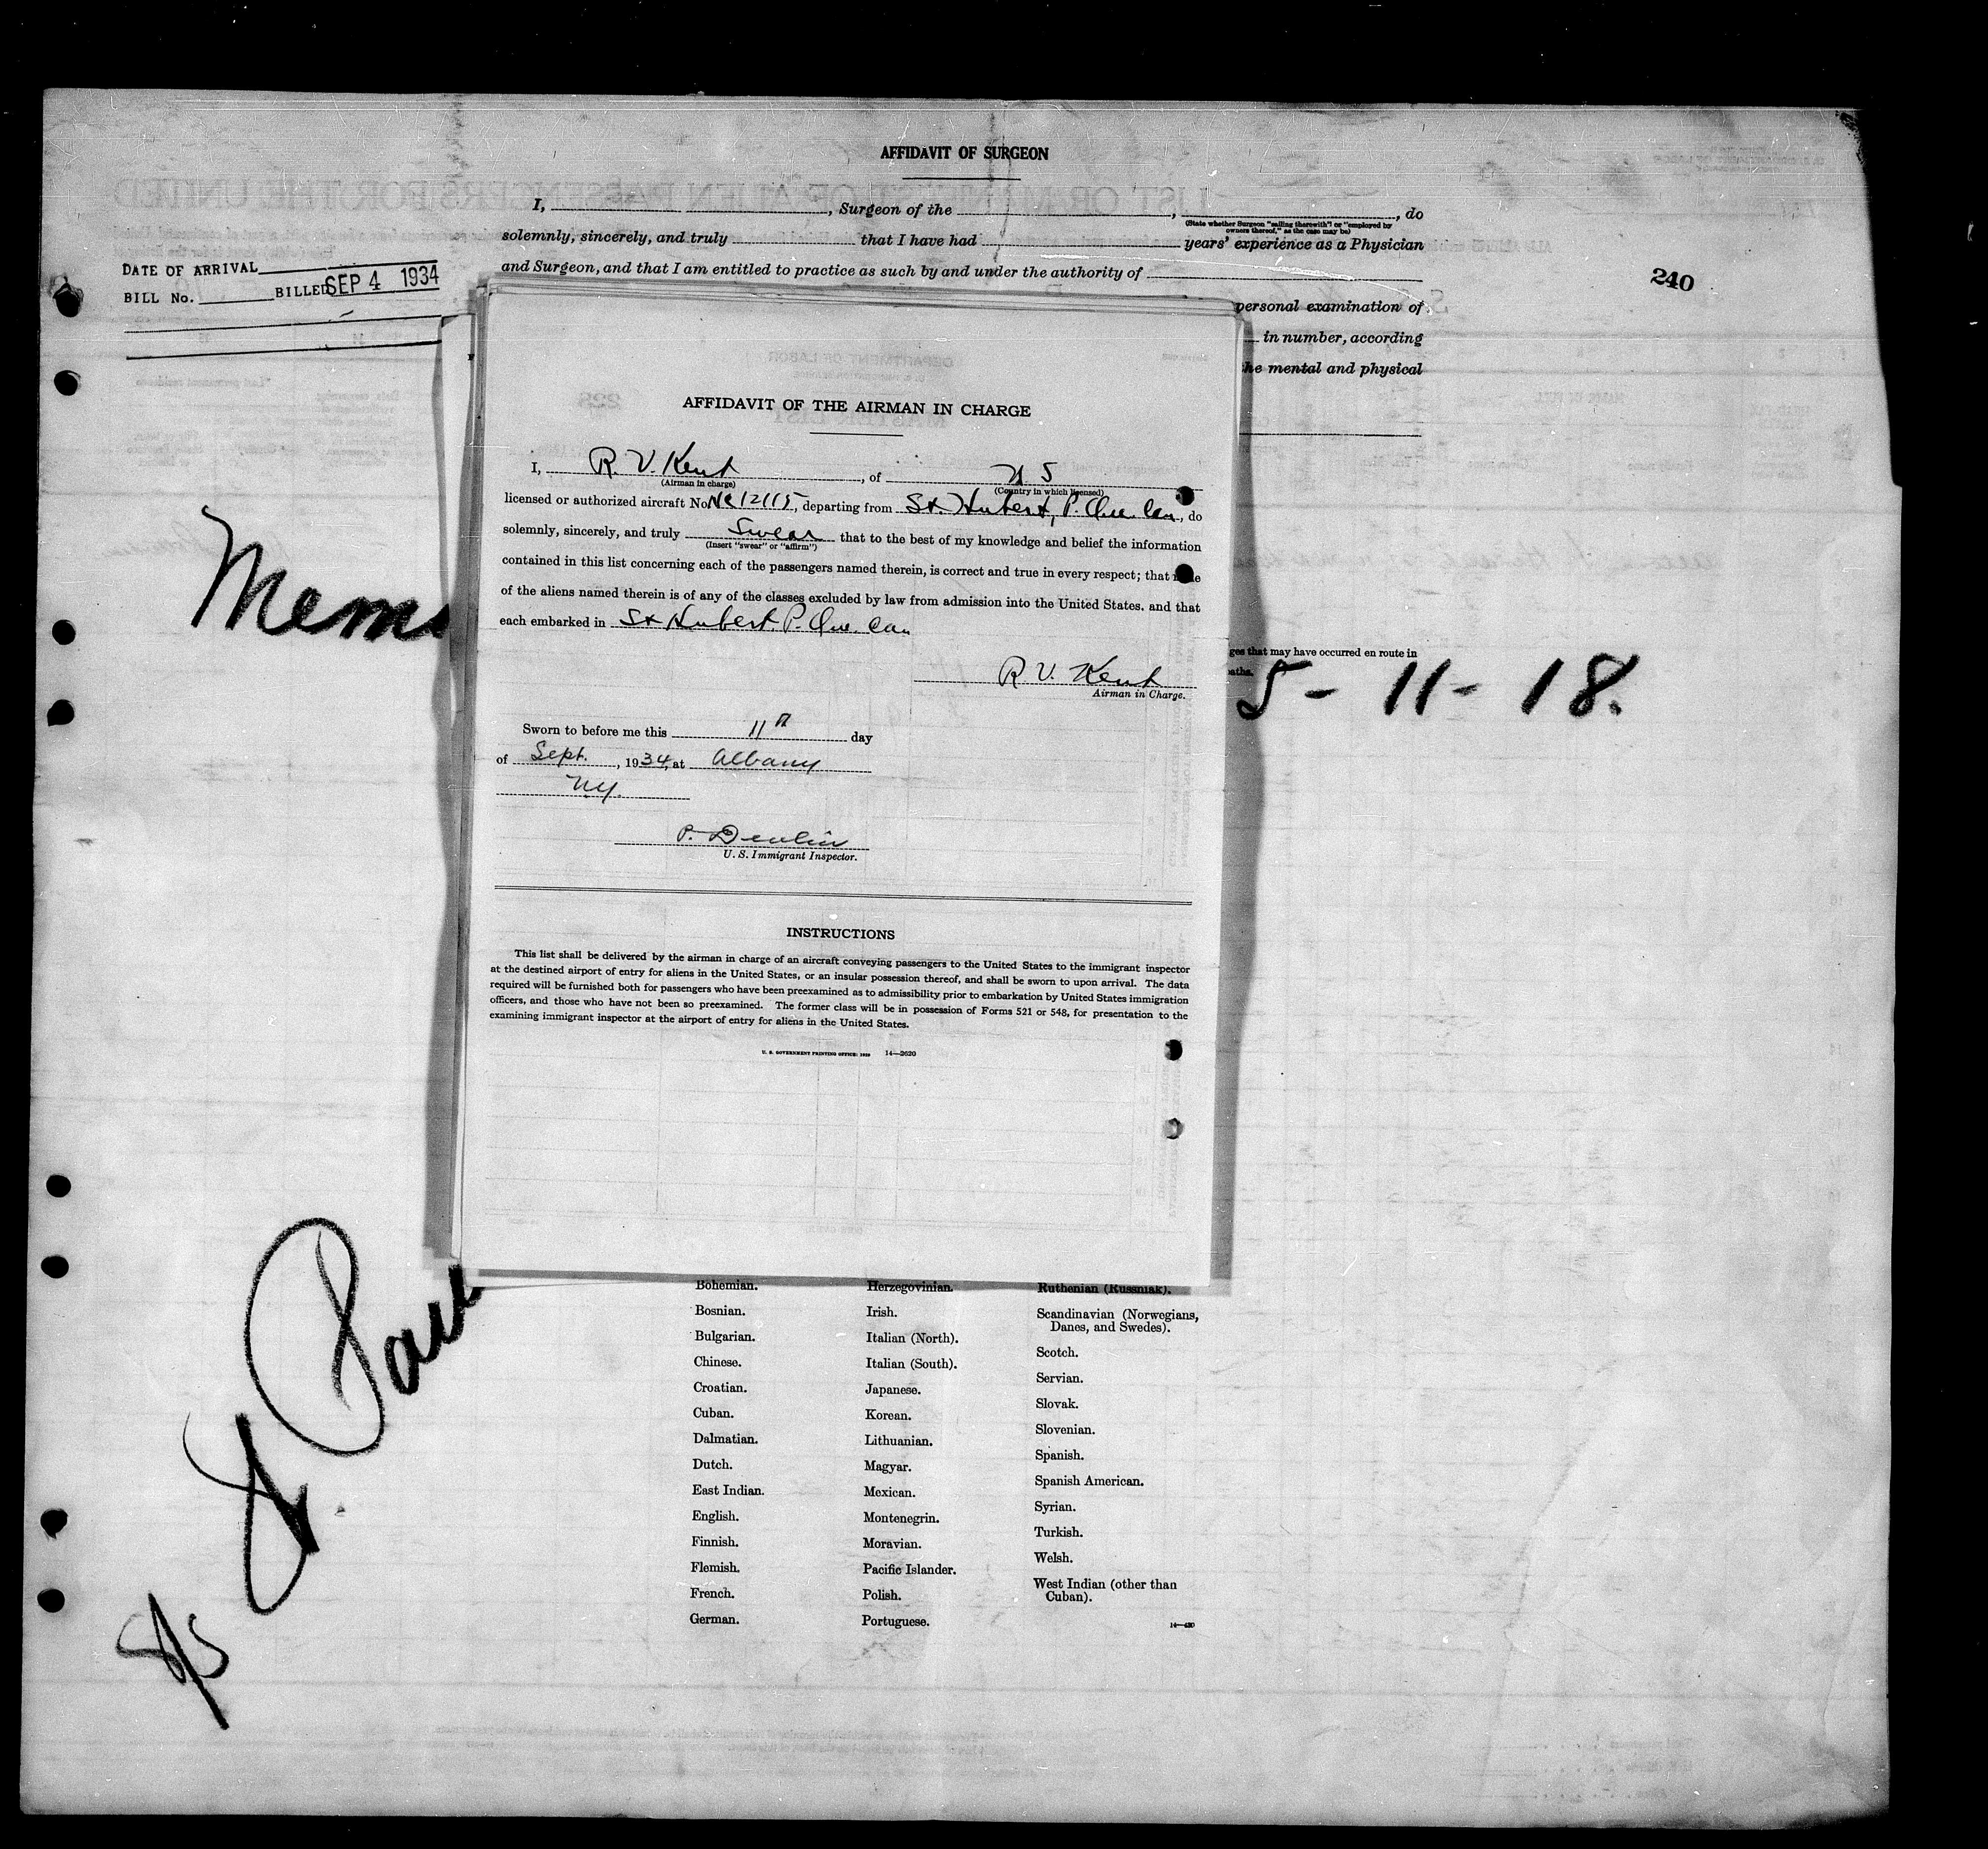 AFFIDAVIT OF SURGEON
I, , Surgeon of the , , do
(State whether Surgeon "sailing therewith" or "employed by
owners thereof," as the case may be)
solemnly, sincerely, and truly that I have had years' experience as a Physician
and Surgeon, and that I am entitled to practice as such by and under the authority of
DATE OF ARRIVAL
BILL No. BILLED SEP 4 1934
240
personal examination of
in number, according
the mental and physical
AFFIDAVIT OF THE AIRMAN IN CHARGE
I, R. V. Kent, of U S
(Airman in charge) (Country in which licensed)
licensed or authorized aircraft No. NC12115, departing from St. Hubert, P. Que. Can, do
solemnly, sincerely, and truly Swear that to the best of my knowledge and belief the information
(Insert "swear" or "affirm")
contained in this list concerning each of the passengers named therein, is correct and true in every respect; that
of the aliens named therein is of any of the classes excluded by law from admission into the United States. and that
each embarked in St Hubert. P. Que. Can
R. V. Kent
Airman in Charge.
Sworn to before me this 11th day
of Sept., 1934, at Albany
N.Y.
P. Devlin
U. S. Immigrant Inspector.
INSTRUCTIONS
This list shall be delivered by the airman in charge of an aircraft conveying passengers to the United States to the immigrant inspector
at the destined airport of entry for aliens in the United States, or an insular possession thereof, and shall be sworn to upon arrival. The data
required will be furnished both for passengers who have been preexamined as to admissibility prior to embarkation by United States immigration
officers, and those who have not been so preexamined. The former class will be in possession of Forms 521 or 548, for presentation to the
examining immigrant inspector at the airport of entry for aliens in the United States.
U. S. GOVERNMENT PRINTING OFFICE: 1929 14—2620
ges that may have occurred en route in
aths.
5 - 11 - 18.
Bohemian.
Bosnian.
Bulgarian.
Chinese.
Croatian.
Cuban.
Dalmatian.
Dutch.
East Indian.
English.
Finnish.
Flemish.
French.
German.
Herzegovinian.
Irish.
Italian (North).
Italian (South).
Japanese.
Korean.
Lithuanian.
Magyar.
Mexican.
Montenegrin.
Moravian.
Pacific Islander.
Polish.
Portuguese.
Ruthenian (Russniak).
Scandinavian (Norwegians,
Danes, and Swedes).
Scotch.
Servian.
Slovak.
Slovenian.
Spanish.
Spanish American.
Syrian.
Turkish.
Welsh.
West Indian (other than
Cuban).
14—430